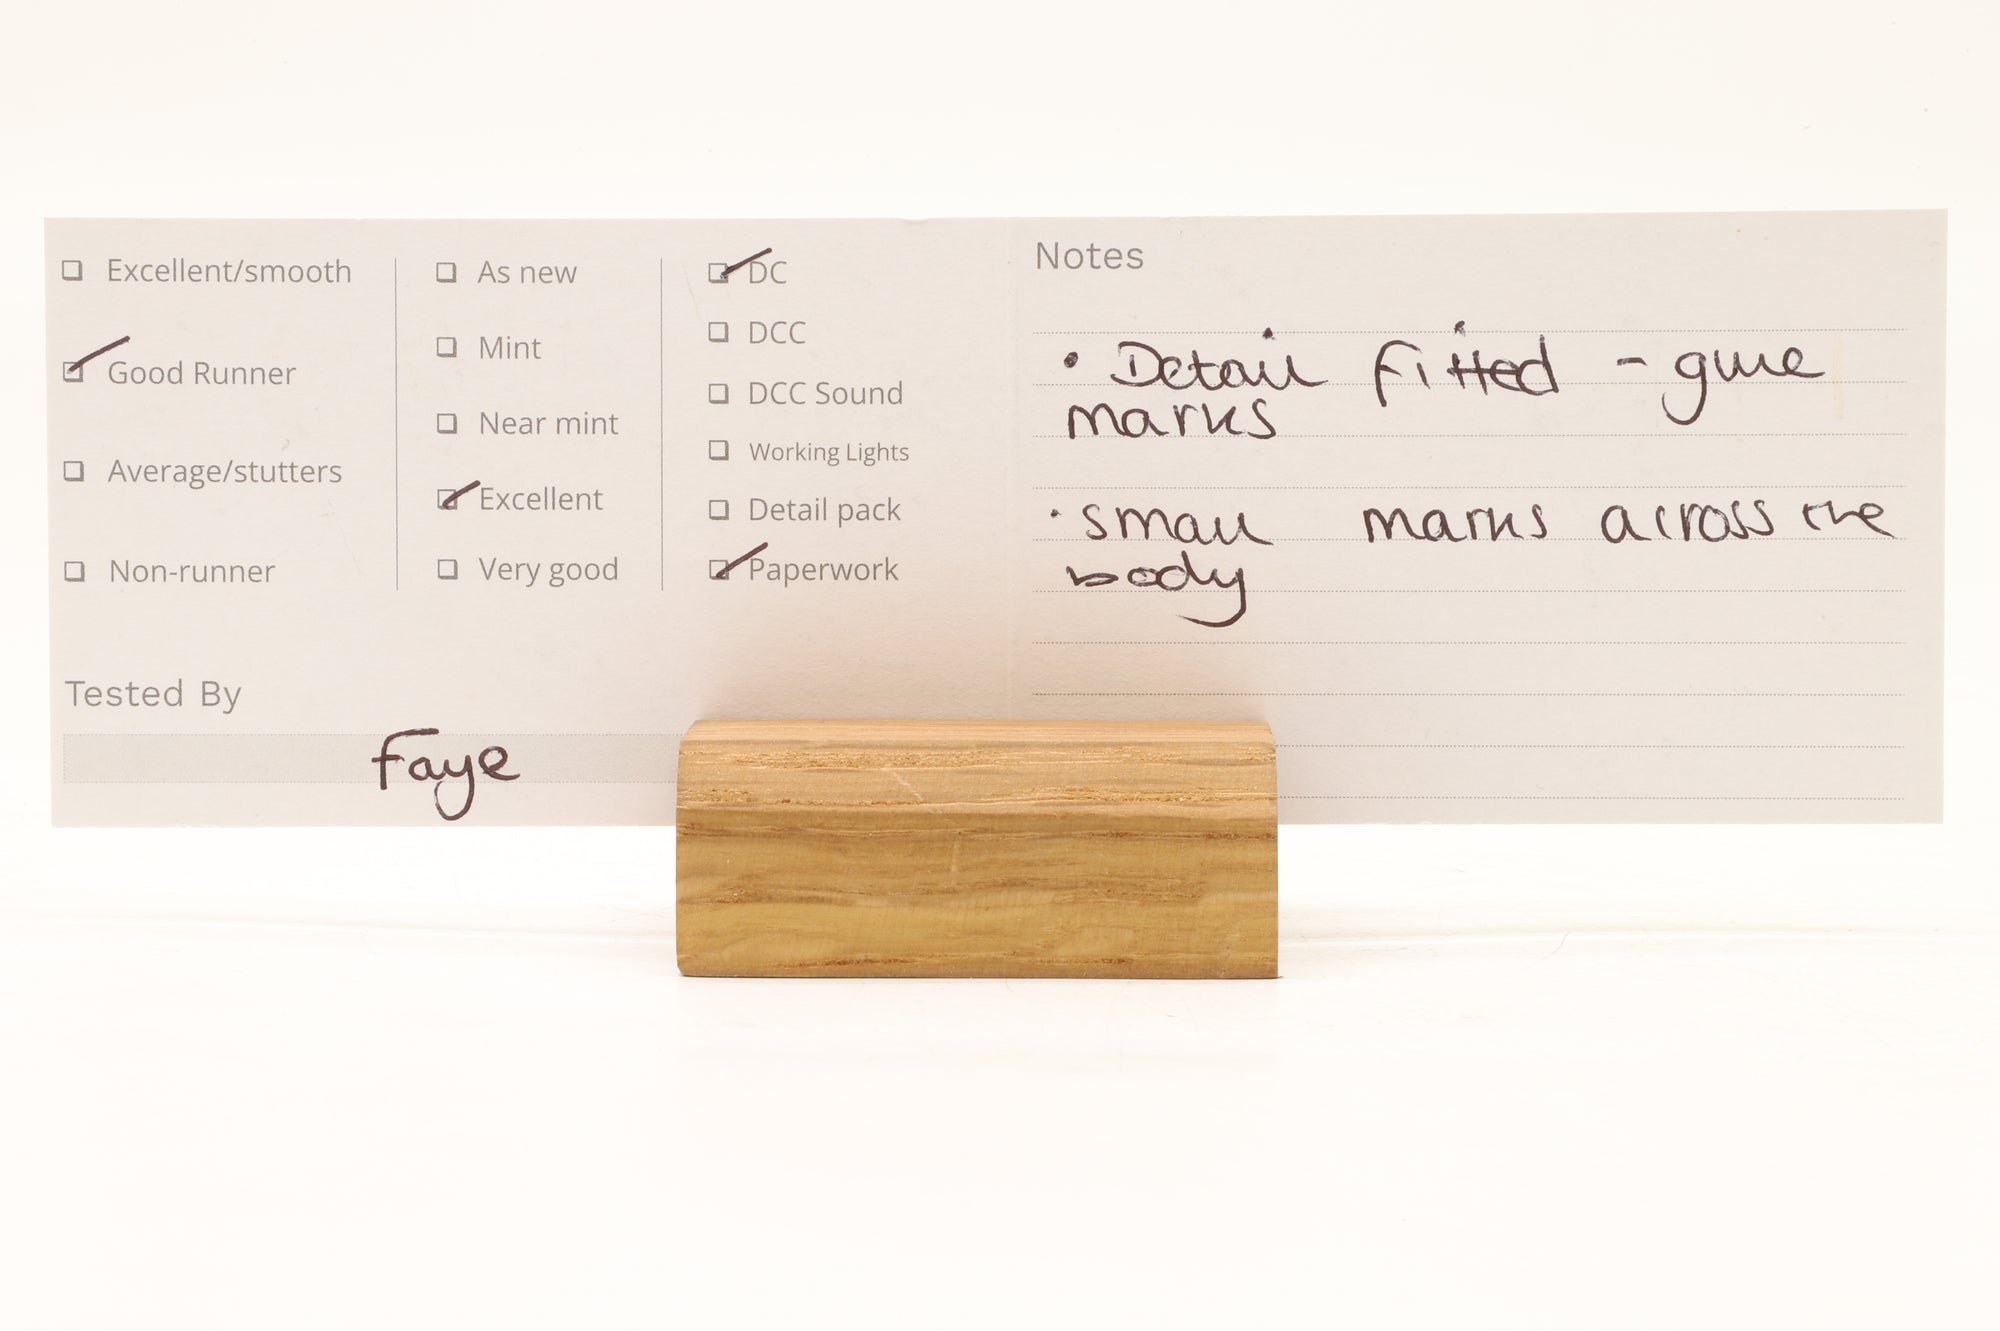 Excellent/smooth
Good Runner
Average/stutters
Non-runner
As new
Mint
Near mint
Excellent
Very good
DC
DCC
DCC Sound
Working Lights
Detail pack
Paperwork
Tested By
Faye
Notes
• Detail fitted - glue
marks
• small marks across the
body